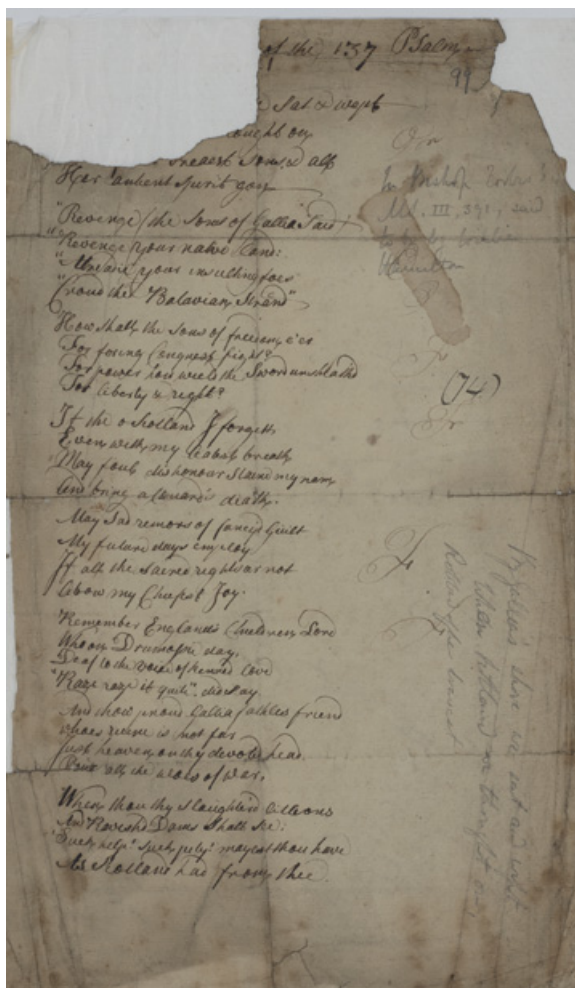 of the 137 Psalm
99
Sat & wept
ought on
Sons, & all
Her antient spirit gon
"Revenge (the sons of Gallia said)
"Revenge your native Land:
your insulting foes
"Croud the Batavian Strand"
How shall the sons of freedom e'er
For foreign Conquest fight?
For power how weeld the Sword unsheathd
For liberty & right?
If the o Scotland I forgett
Even with my breath
May foul dishonour Staine my nam
And bring a Cuard's death.
May Sad remors of fancy'd Guilt
My future days employ
If all thy Sacred rights ar not
Above my Chiefest Joy.
Remember England's Children Lord
Who on Drumossie day,
Deaf to the voice of kindred love
"Raze raze it quite" did say
And thow proud Gallia faithles friend
whoes ruine is not far
Just heaven on thy devoted head
Pour all the woes of War,
When thou thy slaughter'd little ons
And Ravish'd Dams Shall See:
"Such help! Such pity! mayest thou have
As Scotland had from thee
In Bishop Forbes's
MS. III, 391, said
to be by Willie
Hamilton
(74)
Fr
By Gallia's shore we sat and wept
When Scotland we thought on,